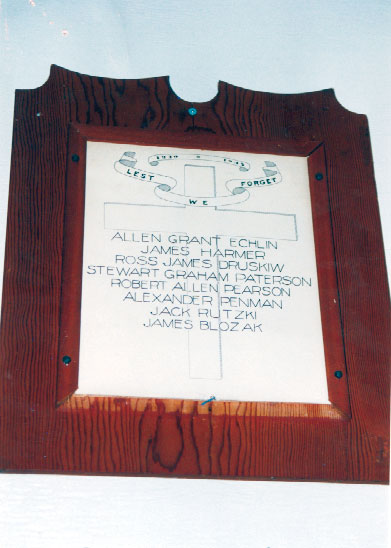 1939 1945
LEST WE FORGET
ALLEN GRANT ECHLIN
JAMES HARMER
ROSS JAMES DRUSKIW
STEWART GRAHAM PATERSON
ROBERT ALLEN PEARSON
ALEXANDER PENMAN
JACK RUTZKI
JAMES BLOZAK